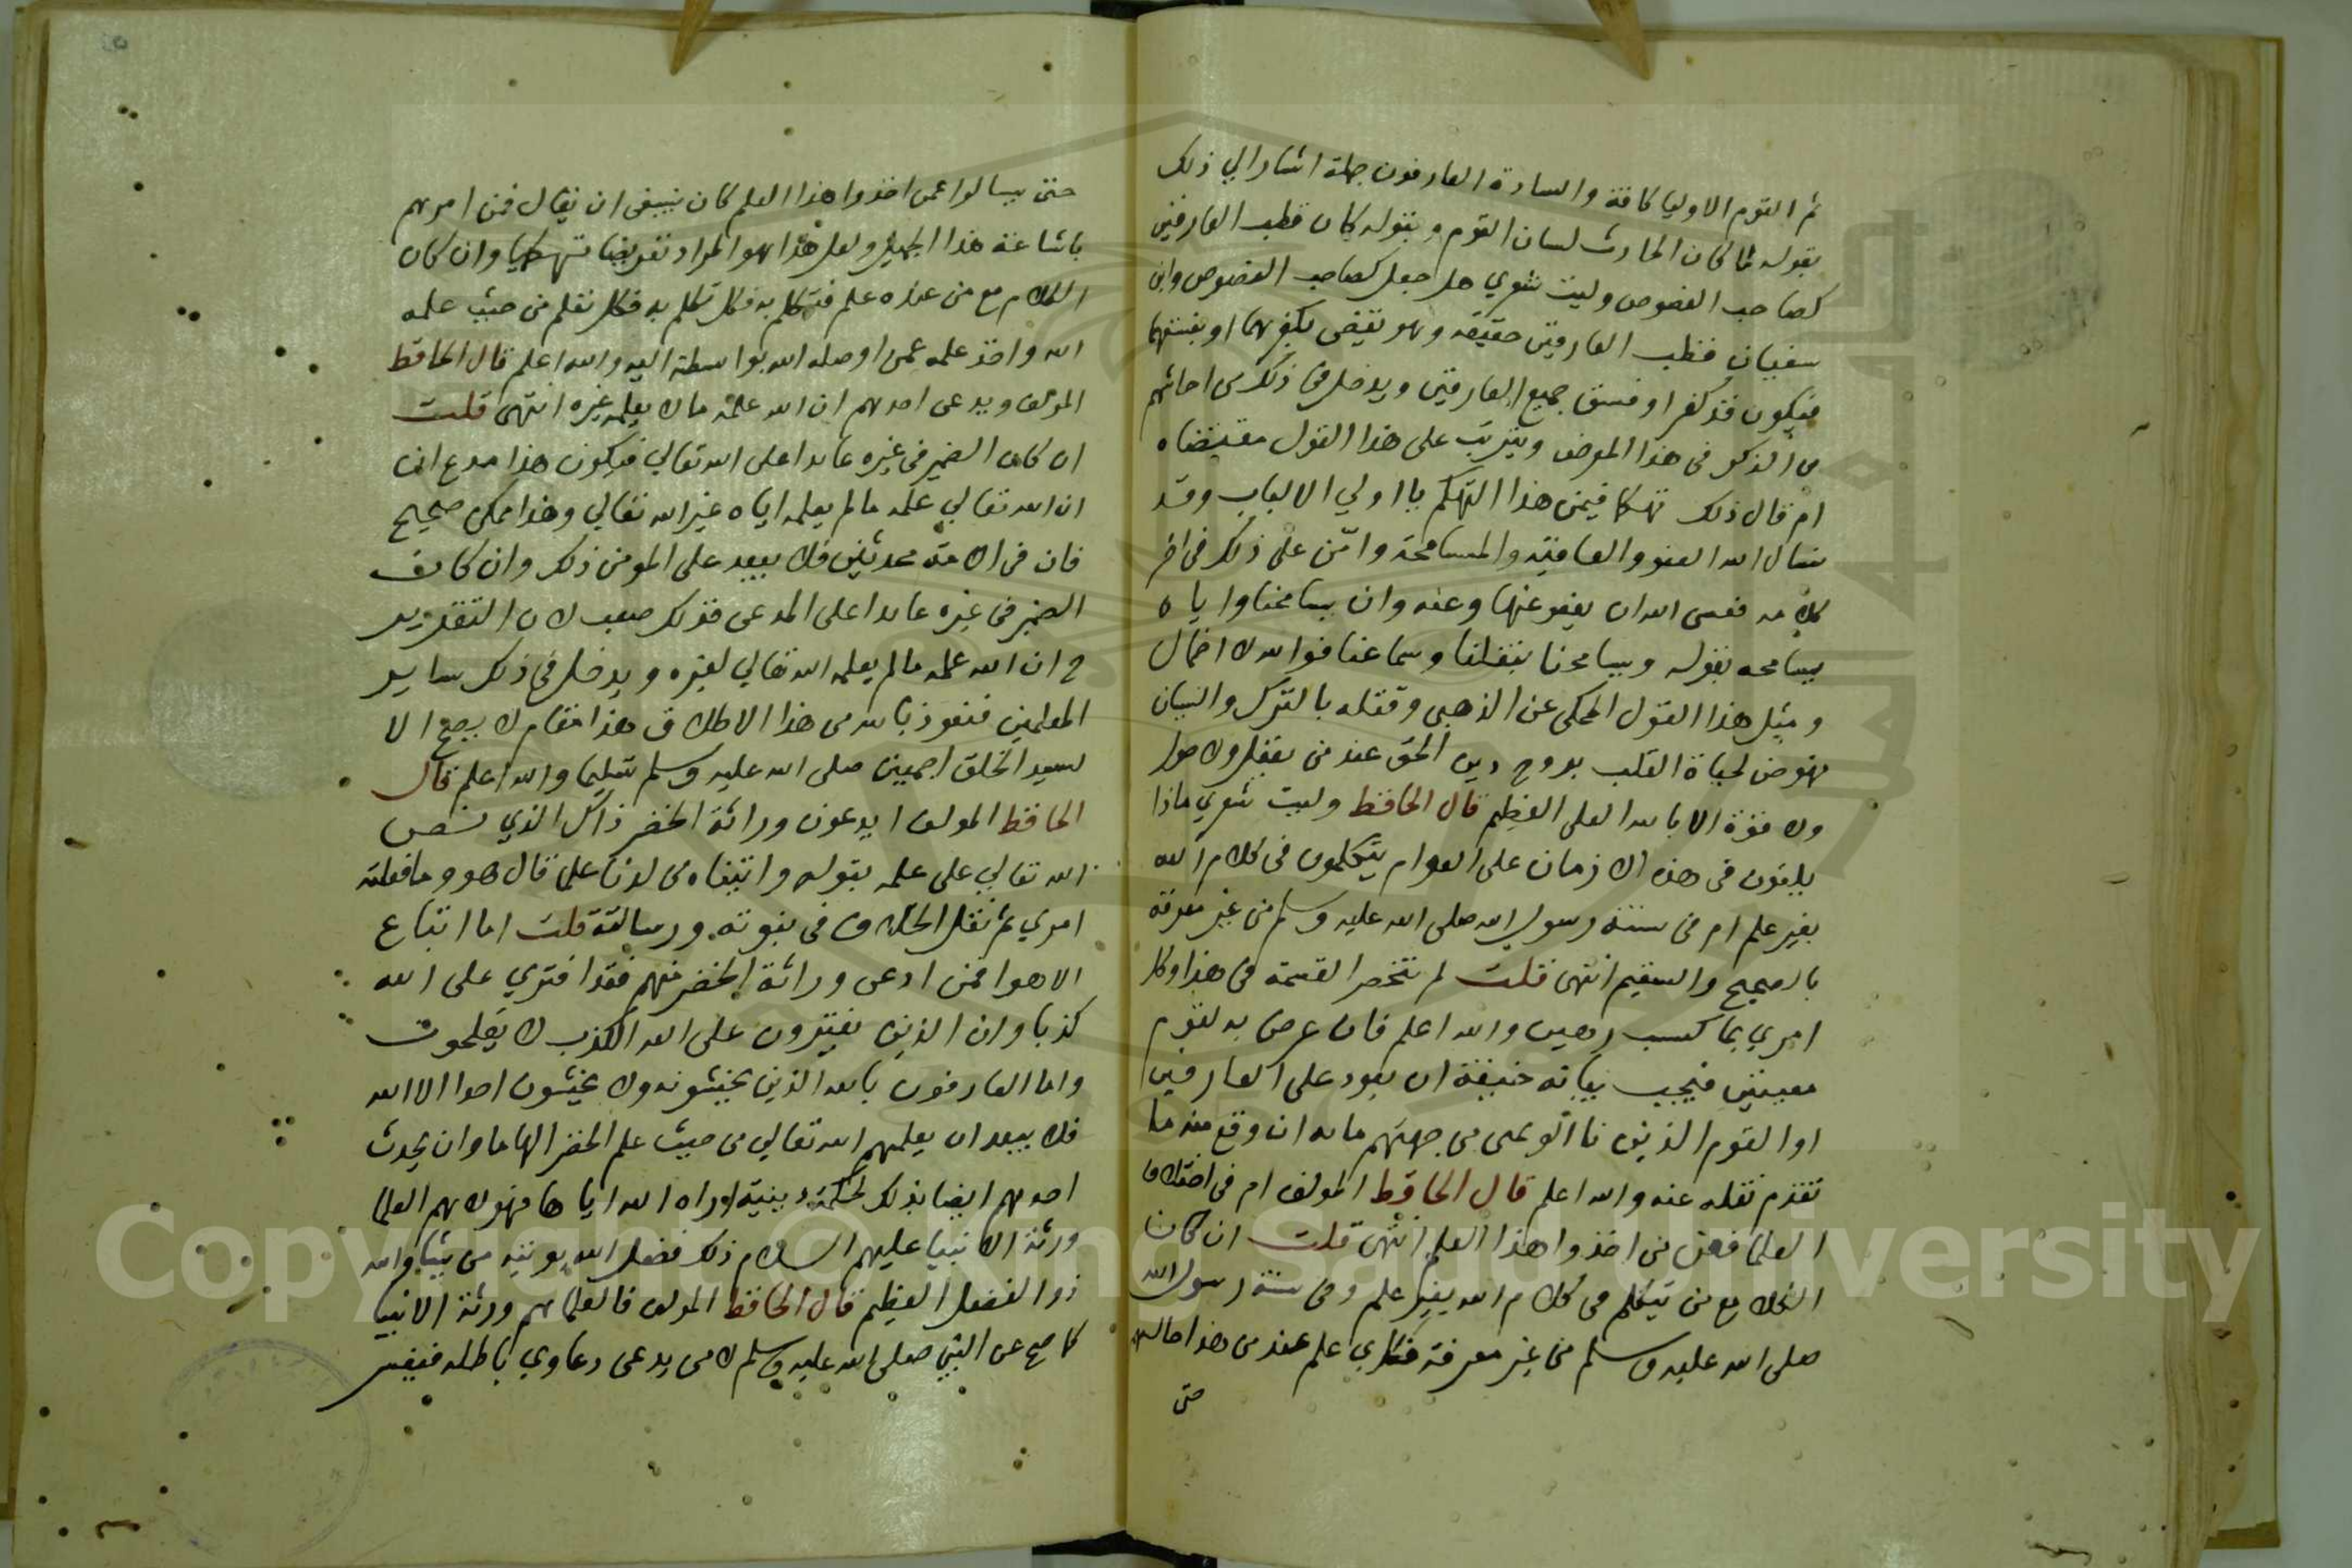 ثم القوم الاوليا كافة والسادة العارفون جملة اشار الي ذلك
بقوله لما كان الحادث لسان القوم وبقوله كان قطب العارفين
كصاحب الفصوص وليت شعري هل جعل كصاحب الفصوص وابن
سفيان قطب العارفين حقيقه وهو يقتضي بكفرهما او بفسقهما
فيكون قد كفر او فسق جميع العارفين ويدخل في ذلك من احاشهم
من الذكر في هذا المرض ويترتب على هذا القول مقتضاه
ام قال ذلك تهكما فيمن هذا التهكم يا اولي الالباب وقد
سال الله العفو والعافية والمسامحة وامّن على ذلك في اخر
كلامه فعسى الله ان يعفو عنها وعنه وان يسامحنا واياه
يسامحه بقوله ويسامحنا بنقلنا وسماعنا فوالله لا اخال
ومثل هذا القول المحكى عن الذهبى وقتله بالترك والنسيان
نهوض لحياة القلب بروح دين الحق عند من يعقل ولا حول
ولا قوة الا بالله العلى العظيم قال الحافظ وليت شعري ماذا
يلقون في هذه الازمان على العوام يتكلمون في كلام الله
بغير علم ام في سنة رسول الله صلى الله عليه وسلم من غير معرفة
بالصحيح والسقيم انتهى قلت لم تنحصر القسمة في هذا وكل
امري بما كسب رهين والله اعلم فان عرض به لقوم
معينين فيجب بيانه خيفة ان يعود على العارفين
او القوم الذين نا اتو عمى من جهتهم ماله ان وقع منه ما
تقدم نقله عنه والله اعلم قال الحافظ المولف ام في اختلاف
العلما فعن من اخذوا هذا العلم انتهى قلت ان كان
الكلام مع من يتكلم في كلام الله بغير علم وفى سنة رسول الله
صلى الله عليه وسلم من غير معرفة فكاري علم عند من هذا حاله
حتى
حتى يسالوا عمن اخذوا هذا العلم كان ينبغى ان يقال فمن امرهم
باشاعة هذا الجهل ولعل هذا هو المراد تعريضا تهكما وان كان
الكلام مع من عنده علم فتكلم به فكل تكلم به فكل تعلم من حيث علمه
الله واخذ علمه عمن اوصله الله بواسطة اليه والله اعلم قال الحافظ
المولف ويدعى احدهم ان الله علمه مالا يعلمه غيره انتهى قلت
ان كان الضمير في غيره عايدا على الله تعالي فيكون هذا مدع ان
ان الله تعالي علمه ما لم يعلمه اياه غير الله تعالي وهذا ممكن صحيح
فان في الامة محدثين فلا يبعد على المومن ذلك وان كان
الضمير في غيره عايدا على المدعى فذلك صعب لان التقدير
ح ان الله علمه ما لم يعلمه الله تعالي لغيره ويدخل في ذلك ساير
المعلمين فنعوذ بالله من هذا الاطلاق هذا مقام لا يصح الا
لسيد الخلق اجمعين صلى الله عليه وسلم تسليما والله اعلم قال
الحافظ المولف ايدعون وراثة الخضر ذاك الذي نص
الله تعالي على علمه بقوله واتيناه من لدنا علما قال هو وما فعلته
امري ثم نقل الخلاف في نبوته ورسالته قلت اما اتباع
الاهوا فمن ادعى وراثة الخضر منهم فقد افترى على الله
كذبا وان الذين يفترون على الله الكذب لا يفلحون
واما العارفون بالله الذين يخشونه ولا يخشون احدا الا الله
فلا يبعد ان يعلمهم الله تعالي من حيث علم الخضر الهاما وان يحدث
احدهم ايضا بذلك لحكمة دينية اراه الله اياها فهولاء هم العلما
ورثة الانبيا عليهم السلام ذلك فضل الله يوتيه من يشا والله
ذو الفضل العظيم قال الحافظ المولف فالعلما هم ورثة الانبيا
كما صح عن النبي صلى الله عليه وسلم لا من يدعى دعاوي باطله فيفسر
Copyright © King Saud University